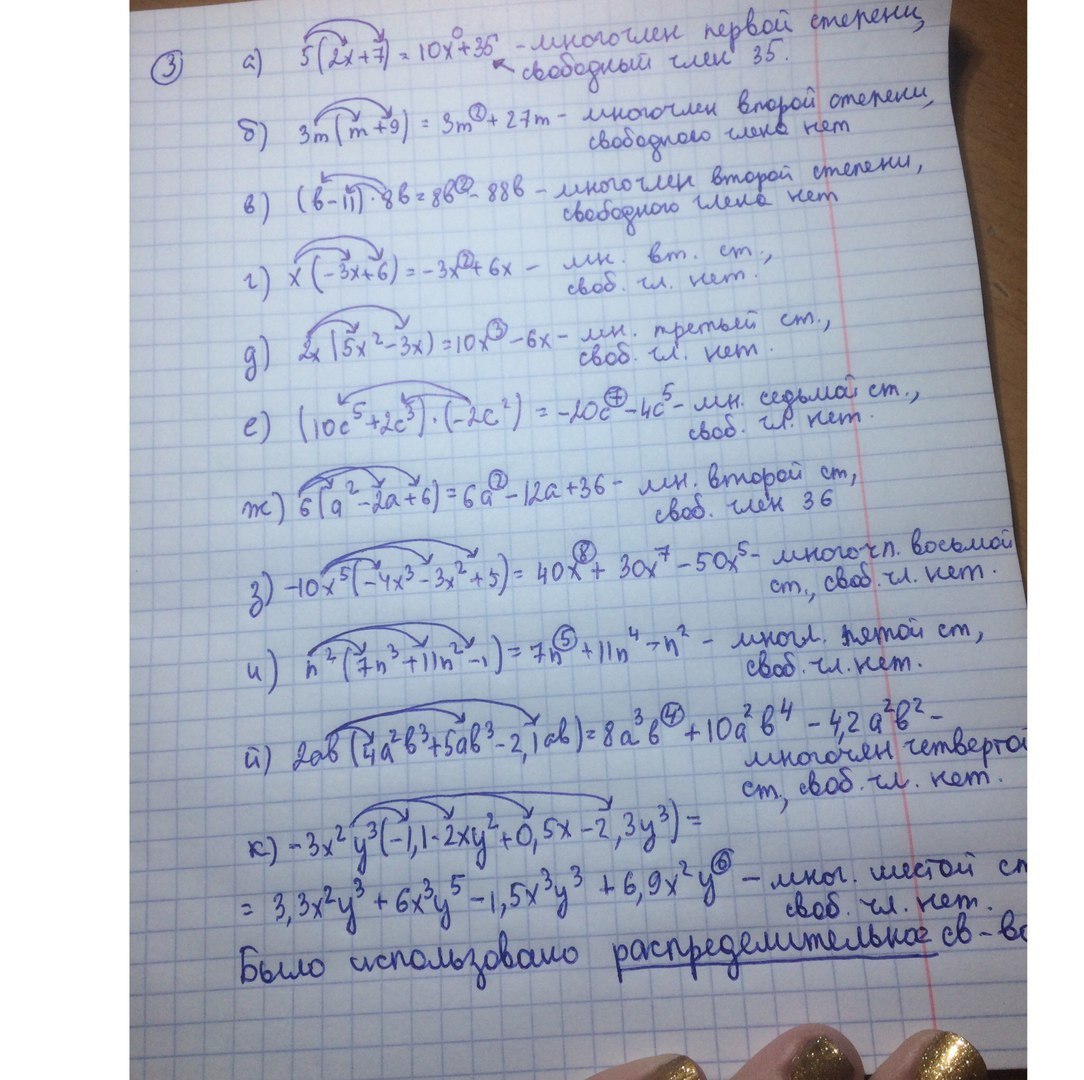 ③ а) 5(2x+7) = 10x⁰+35 - многочлен первой степени,
свободный член 35.
б) 3m(m+9) = 3m²+27m - многочлен второй степени,
свободного члена нет
в) (b-11)·8b=8b²-88b - многочлен второй степени,
свободного члена нет
г) x(-3x+6)=-3x²+6x - мн. вт. ст.,
своб. чл. нет.
д) 2x(5x²-3x)=10x³-6x - мн. третьей ст.,
своб. чл. нет.
е) (10c⁵+2c³)·(-2c²) = -20c⁷-4c⁵ - мн. седьмой ст.,
своб. чл. нет.
ж) 6(a²-2a+6)=6a²-12a+36 - мн. второй ст,
своб. член 36
з) -10x⁵(-4x³-3x²+5)= 40x⁸+ 30x⁷-50x⁵- многочл. восьмой
ст., своб. чл. нет.
и) n²(7n³+11n²-1)= 7n⁵+11n⁴-n² - многл. пятой ст,
своб. чл. нет.
й) 2ab(4a²b³+5ab³-2,1ab)=8a³b⁴+10a²b⁴-4,2a²b²-
многочлен четвертой
ст, своб. чл. нет.
к) -3x²y³(-1,1-2xy²+0,5x-2,3y³)=
= 3,3x²y³+6x³y⁵-1,5x³y³+6,9x²y⁶ - мног. шестой ст
своб. чл. нет.
Было использовано распределительное св-во